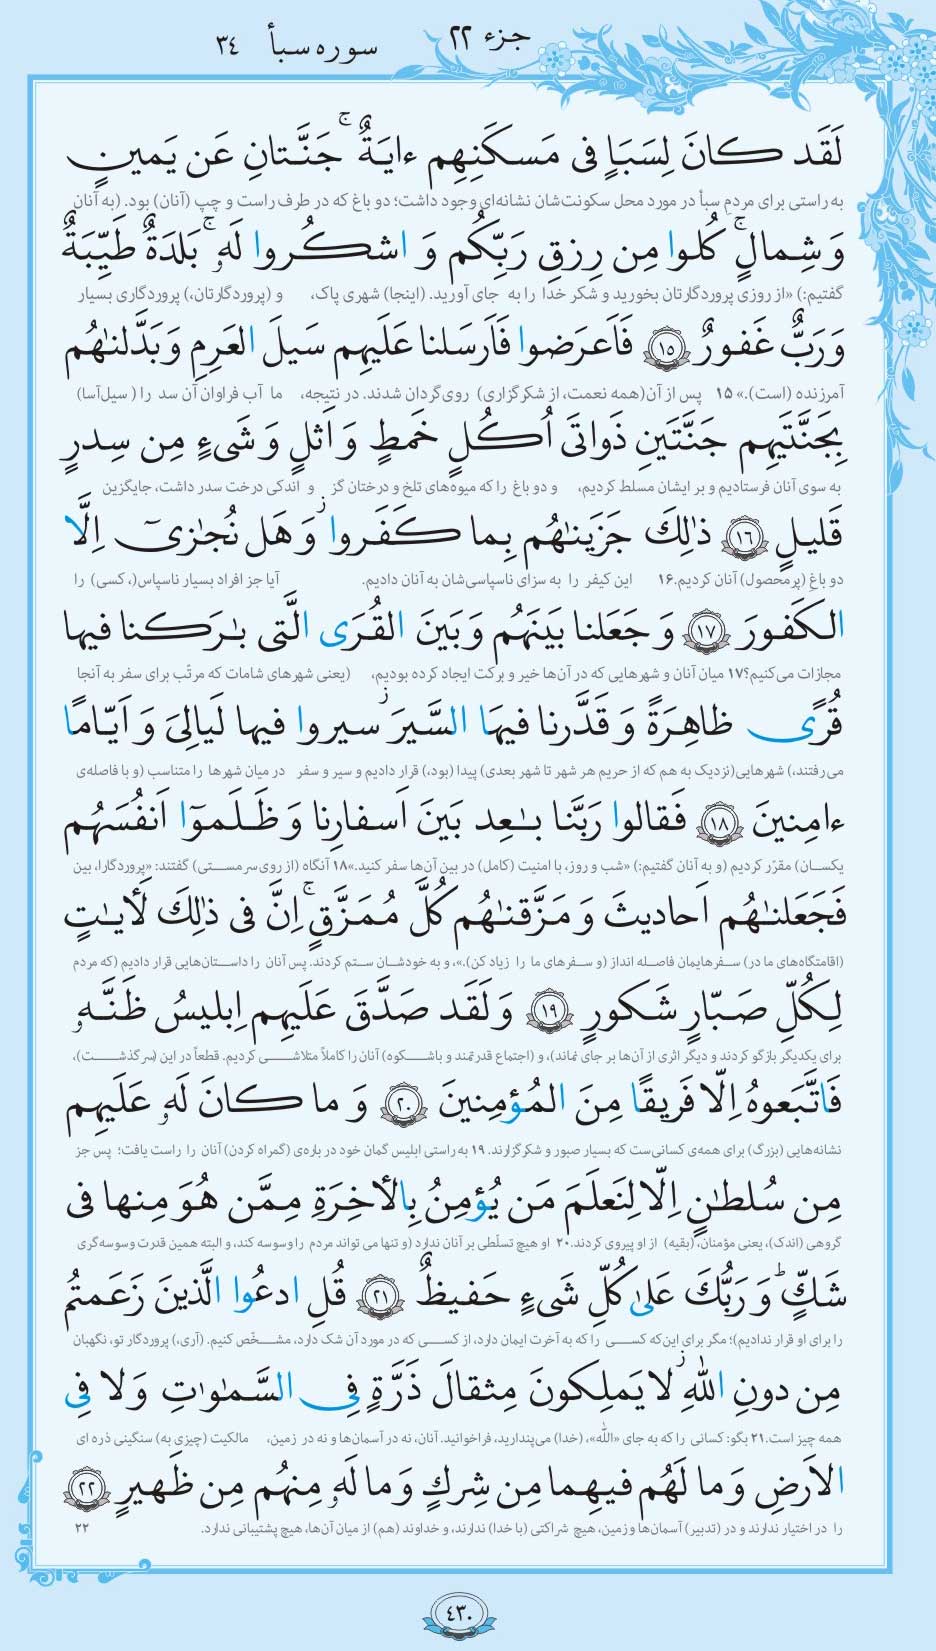 جزء ٢٢
سوره سبأ ٣٤
لَقَد كانَ لِسَبَاٍ فى مَسكَنِهِم ءايَةٌ ۚ جَنَّتانِ عَن يَمينٍ
به راستی برای مردمِ سبأ در مورد محل سکونت‌شان نشانه‌ای وجود داشت؛ دو باغ که در طرف راست و چپ (آنان) بود. (به آنان
وَ شِمالٍ ۚ كُلوا مِن رِزقِ رَبِّكُم وَ اشكُروا لَهٗ ۚ بَلدَةٌ طَيِّبَةٌ
گفتیم:) «از روزی پروردگارتان بخورید و شکر خدا را به جای آورید. (اینجا) شهری پاک، و (پروردگارتان،) پروردگاری بسیار
وَ رَبٌّ غَفورٌ ١٥ فَاَعرَضوا فَاَرسَلنا عَلَيهِم سَيلَ العَرِمِ وَ بَدَّلنٰهُم
آمرزنده (است).» ۱۵ پس از آن(همه نعمت، از شکرگزاری) روی‌گردان شدند. در نتیجه، ما آب فراوان آن سد را (سیل‌آسا)
بِجَنَّتَيهِم جَنَّتَينِ ذَواتَى اُكُلٍ خَمطٍ وَ اَثلٍ وَ شَىءٍ مِن سِدرٍ
به سوی آنان فرستادیم و بر ایشان مسلط کردیم، و دو باغ را که میوه‌های تلخ و درختان گز و اندکی درخت سدر داشت، جایگزین
قَليلٍ ١٦ ذٰلِكَ جَزَينٰهُم بِما كَفَروا ۖ وَ هَل نُجٰزىٓ اِلَّا
دو باغ (پرمحصول) آنان کردیم.۱۶ این کیفر را به سزای ناسپاسی‌شان به آنان دادیم. آیا جز افراد بسیار ناسپاس(، کسی) را
الكَفورَ ١٧ وَ جَعَلنا بَينَهُم وَ بَينَ القُرَى الَّتى بٰرَكنا فيها
مجازات می‌کنیم؟۱۷ میان آنان و شهرهایی که در آن‌ها خیر و برکت ایجاد کرده بودیم، (یعنی شهرهای شامات که مرتّب برای سفر به آنجا
قُرًى ظاهِرَةً وَ قَدَّرنا فيهَا السَّيرَ ۖ سيروا فيها لَيالِىَ وَ اَيّامًا
می‌رفتند،) شهرهایی(نزدیک به هم که از حریم هر شهر تا شهر بعدی) پیدا (بود،) قرار دادیم و سیر و سفر در میان شهرها را متناسب (و با فاصله‌ی
ءامِنينَ ١٨ فَقالوا رَبَّنا بٰعِد بَينَ اَسفارِنا وَ ظَلَموٓا اَنفُسَهُم
یکسان) مقرّر کردیم (و به آنان گفتیم:) «شب و روز، با امنیت (کامل) در بین آن‌ها سفر کنید.»۱۸ آنگاه (از روی سرمستی) گفتند: «پروردگارا، بین
فَجَعَلنٰهُم اَحاديثَ وَ مَزَّقنٰهُم كُلَّ مُمَزَّقٍ ۚ اِنَّ فى ذٰلِكَ لَأَياٰتٍ
(اقامتگاه‌های ما در) سفرهایمان فاصله انداز (و سفرهای ما را زیاد کن).»، و به خودشان ستم کردند. پس آنان را داستان‌هایی قرار دادیم (که مردم
لِكُلِّ صَبّارٍ شَكورٍ ١٩ وَ لَقَد صَدَّقَ عَلَيهِم اِبليسُ ظَنَّهٗ
برای یکدیگر بازگو کردند و دیگر اثری از آن‌ها بر جای نماند)، و (اجتماع قدرتمند و باشکوه) آنان را کاملاً متلاشی کردیم. قطعاً در این (سرگذشت)،
فَاتَّبَعوهُ اِلّا فَريقًا مِنَ المُؤمِنينَ ٢٠ وَ ما كانَ لَهٗ عَلَيهِم
نشانه‌هایی (بزرگ) برای همه‌ی کسانی‌ست که بسیار صبور و شکرگزارند. ۱۹ به راستی ابلیس گمان خود در باره‌ی (گمراه کردن) آنان را راست یافت؛ پس جز
مِن سُلطٰنٍ اِلّا لِنَعلَمَ مَن يُؤمِنُ بِالأخِرَةِ مِمَّن هُوَ مِنها فى
گروهی (اندک)، یعنی مؤمنان، (بقیه) از او پیروی کردند.۲۰ او هیچ تسلّطی بر آنان ندارد (و تنها می تواند مردم را وسوسه کند، و البته همین قدرت وسوسه‌گری
شَكٍّ ۗ وَ رَبُّكَ عَلىٰ كُلِّ شَىءٍ حَفيظٌ ٢١ قُلِ ادعُوا الَّذينَ زَعَمتُم
را برای او قرار ندادیم)؛ مگر برای این‌که کسی را که به آخرت ایمان دارد، از کسی که در مورد آن شک دارد، مشخّص کنیم. (آری،) پروردگار تو، نگهبان
مِن دونِ اللّٰهِ ۖ لا يَملِكونَ مِثقالَ ذَرَّةٍ فِى السَّمٰوٰتِ وَ لا فِى
همه چیز است.۲۱ بگو: کسانی را که به جای «الله»، (خدا) می‌پندارید، فراخوانید. آنان، نه در آسمان‌ها و نه در زمین، مالکیت (چیزی به) سنگینی ذره ای
الاَرضِ وَ ما لَهُم فيهِما مِن شِركٍ وَ ما لَهٗ مِنهُم مِن ظَهيرٍ ٢٢
را در اختیار ندارند و در (تدبیر) آسمان‌ها و زمین، هیچ شراکتی (با خدا) ندارند، و خداوند (هم) از میان آن‌ها، هیچ پشتیبانی ندارد. ۲۲
٤٣٠